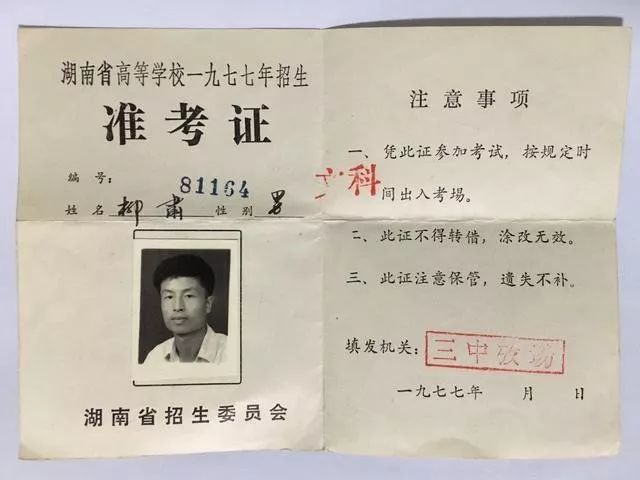 湖南省高等学校一九七七年招生
准考证
编号：81164
姓名 柳肃 性别 男
湖南省招生委员会
文科
注意事项
一、凭此证参加考试，按规定时
间出入考場。
二、此证不得转借，涂改无效。
三、此证注意保管，遗失不补。
填发机关：三中考场
一九七七年 月 日